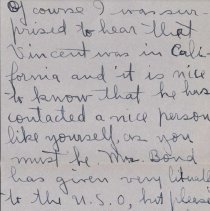 Of course I was sur-
prised to hear that
Vincent was in Cali-
fornia and it is nice
to know that he has
contacted a nice person
like yourself as you
must be. Mrs. Bond
has given very
to the U.S.O, but please